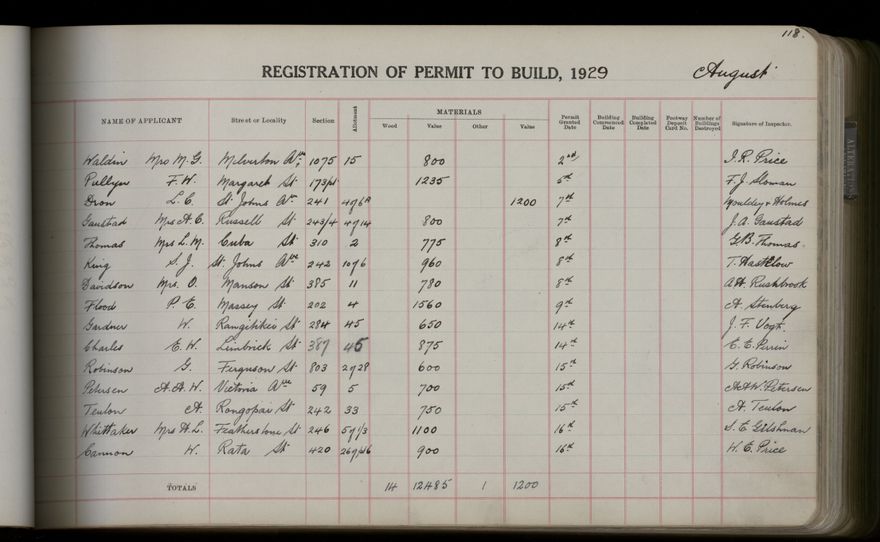 118.
REGISTRATION OF PERMIT TO BUILD, 1929 August
NAME OF APPLICANT Street or Locality Section Allotment MATERIALS Permit Granted Date Building Commenced Date Building Completed Date Footway Deposit Card No. Number of Buildings Destroyed Signature of Inspector.
Wood Value Other Value
Waldin Mrs M. G. Milverton Ave 1075 15 800 2nd J. R. Price
Pullyn F. W. Margaret St 1235 5th F. J. Sloman
Dron L. C. St Johns Av 241 1200 7th Houldey & Holmes
Gaustad Mrs A. C. Russell St 343/4 800 7th J. A. Gaustad
Thomas Mrs L. M. Cuba St 310 2 775 8th G. B. Thomas
King S. J. St Johns Ave 242 960 8th T. Haselow
Davidson Mrs. O. Manson St 385 11 780 8th A H. Rushbrook
Flood P. E. Massey St 202 4 1560 9th A. Stenberg
Gardner W. Rangitikei St 284 45 650 14th J. F. Vogt.
Charles E. W. Limbrick St 387 45 875 14th E. E. Perrin
Robinson G. Ferguson St 803 600 15th G. Robinson
Petersen A. A. W. Victoria Ave 59 5 700 15th A A W. Petersen
Teulon A. Rongopai St 242 33 750 15th A. Teulon
Whittaker Mrs A. L. Featherstone St 246 1100 16th S. E. Gilshnan
Cannon W. Rata St 420 900 16th W. E. Price
TOTALS 14 12485 1 1200